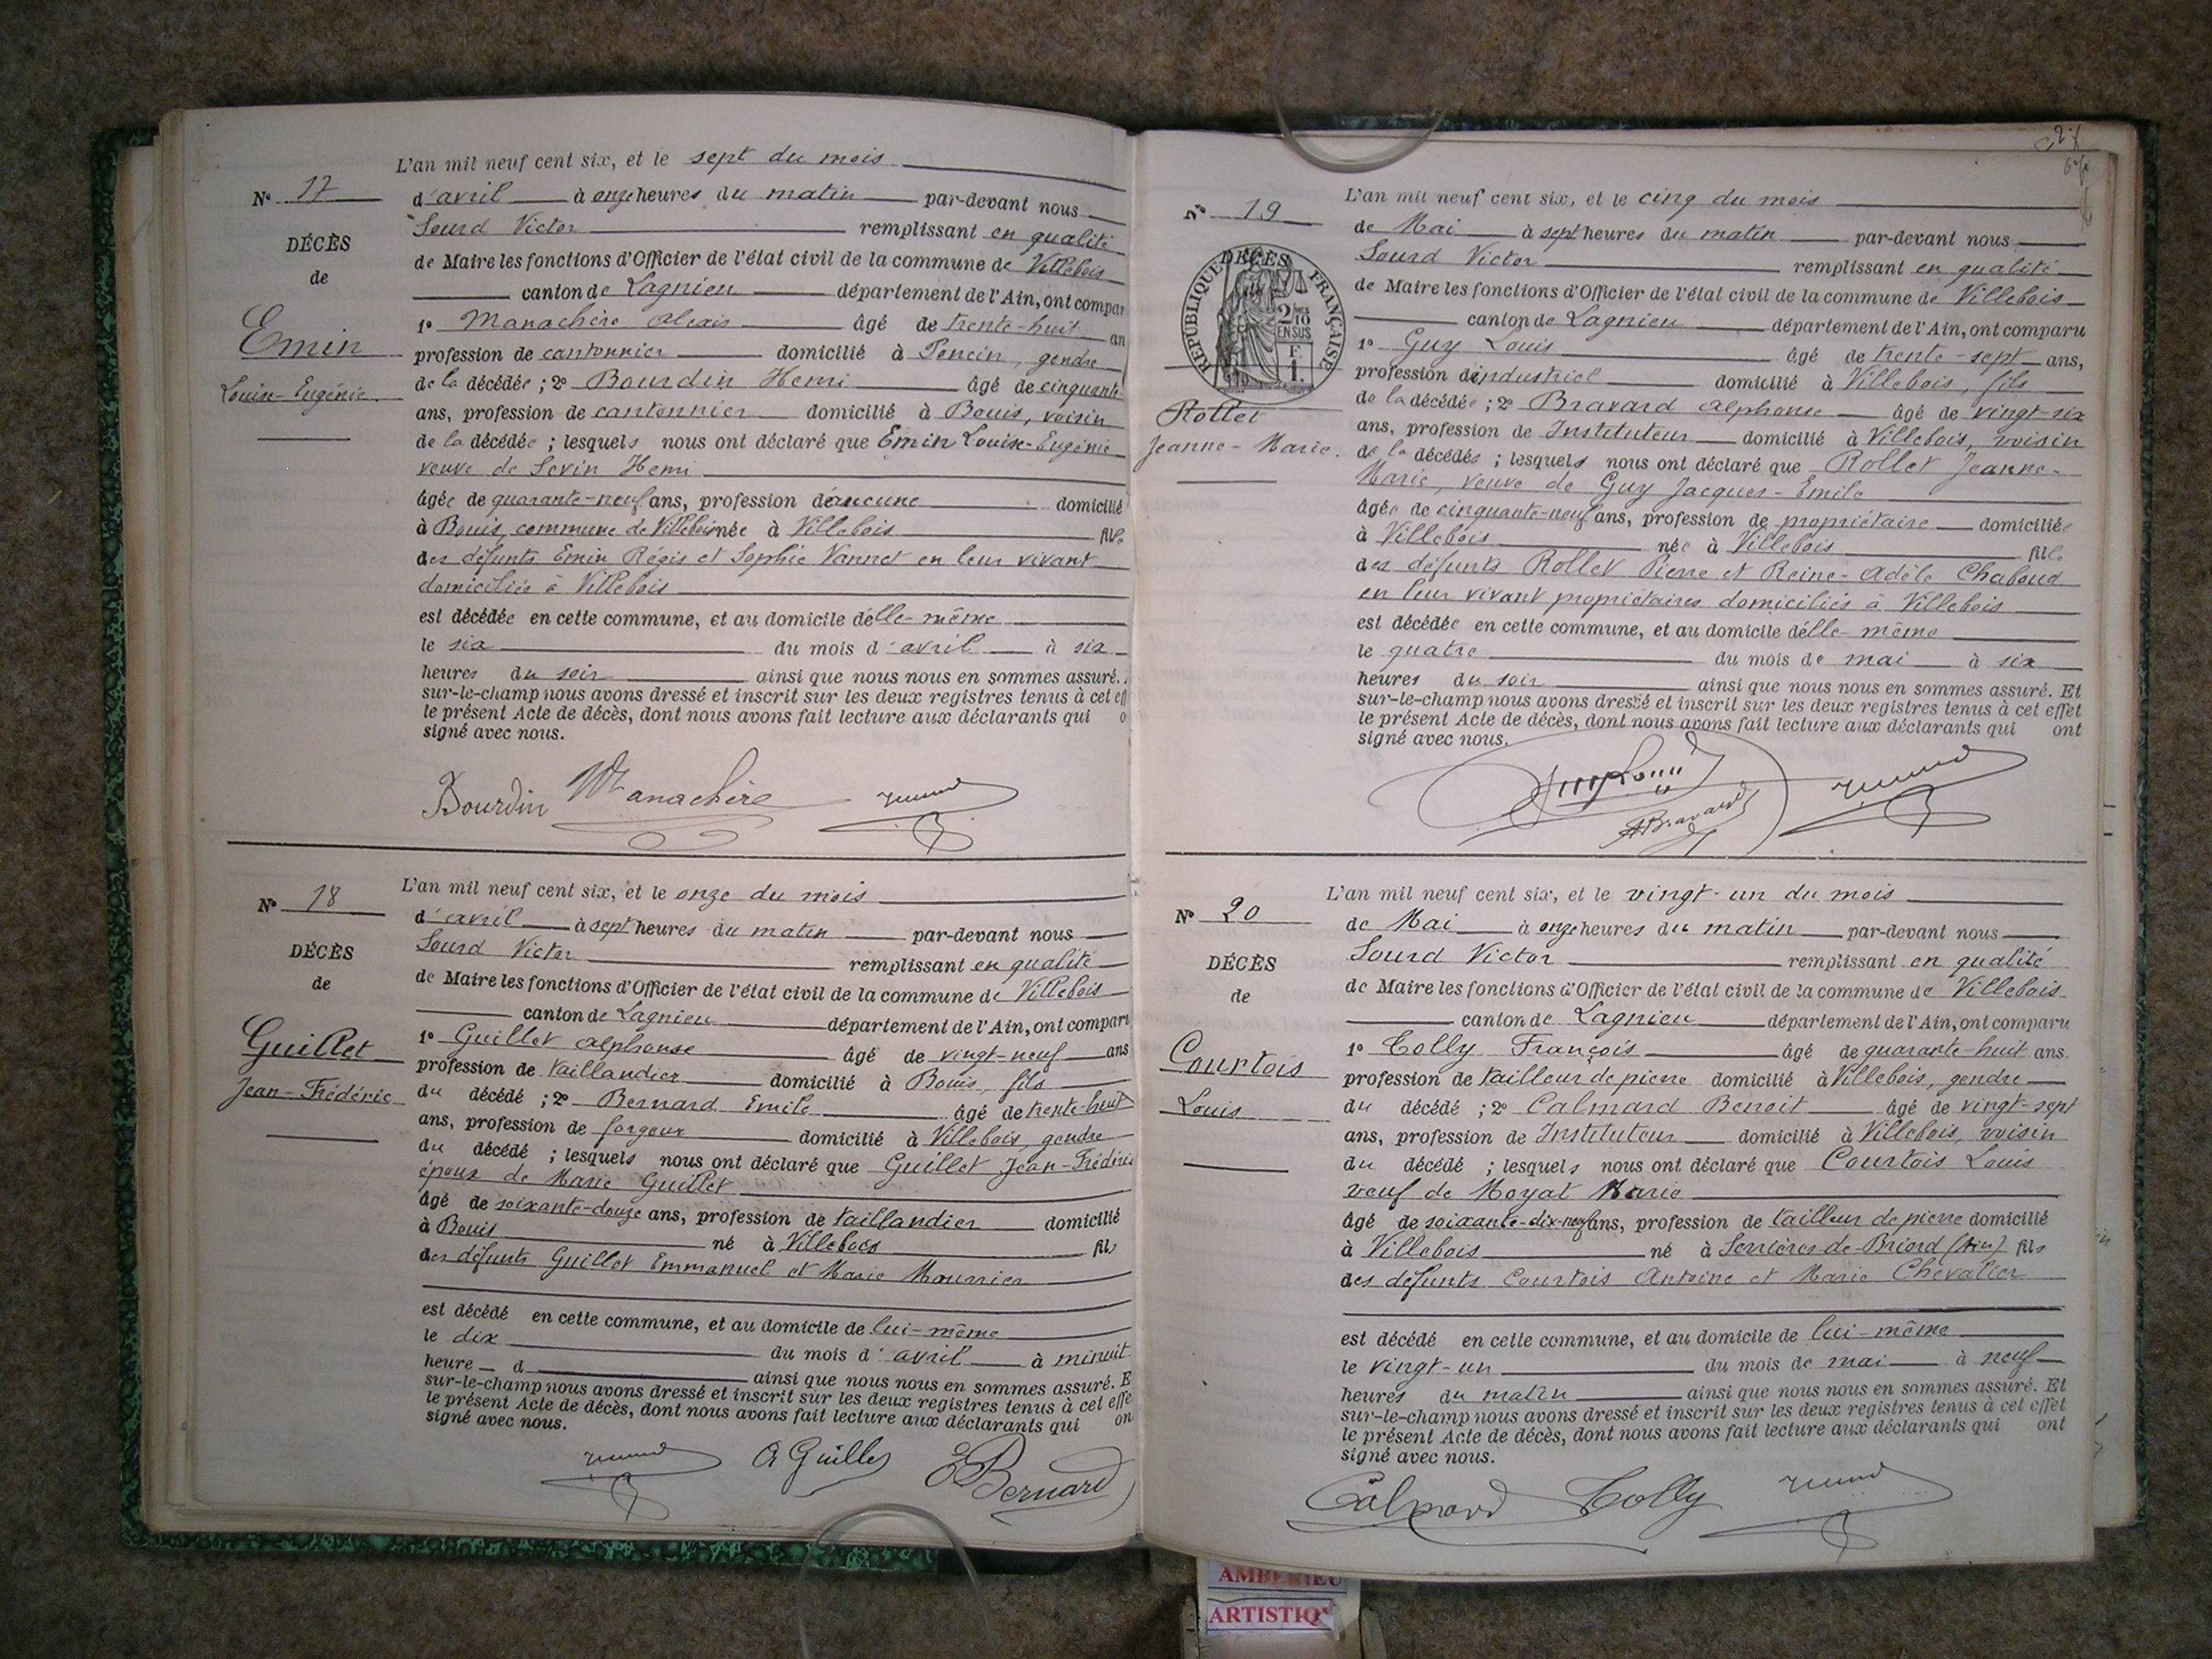 L'an mil neuf cent six, et le sept du mois
N° 17
d'avril à onze heures du matin par-devant nous
Sourd Victor remplissant en qualité
DÉCÈS
de Maire les fonctions d'Officier de l'état civil de la commune de Villebois
de
canton de Lagnieu département de l'Ain, ont compar
1° Manachère Alexis âgé de trente-huit an
Emin
profession de cantonnier domicilié à Poncin, gendre
Louise-Eugénie.
de la décédée ; 2° Bourdin Henri âgé de cinquante
ans, profession de cantonnier domicilié à Bouis, voisin
de la décédée ; lesquels nous ont déclaré que Emin Louise-Eugénie
veuve de Sevin Henri
âgée de quarante-neuf ans, profession d'aucune domicilié
à Bouis, commune de Villebois née à Villebois fille
des défunts Emin Régis et Sophie Vannet en leur vivant
domiciliés à Villebois
est décédée en cette commune, et au domicile d'elle-même
le six du mois d'avril à six
heures du soir ainsi que nous nous en sommes assuré.
sur-le-champ nous avons dressé et inscrit sur les deux registres tenus à cet eff
le présent Acte de décès, dont nous avons fait lecture aux déclarants qui o
signé avec nous.
Bourdin Manachère
L'an mil neuf cent six, et le onze du mois
N° 18
d'avril à sept heures du matin par-devant nous
Sourd Victor remplissant en qualité
DÉCÈS
de Maire les fonctions d'Officier de l'état civil de la commune de Villebois
de
canton de Lagnieu département de l'Ain, ont compar
1° Guillet Alphonse âgé de vingt-neuf ans
Guillet
profession de taillandier domicilié à Bouis, fils
Jean-Frédéric
du décédé ; 2° Bernard Emile âgé de trente-huit
ans, profession de forgeur domicilié à Villebois, gendre
du décédé ; lesquels nous ont déclaré que Guillet Jean-Frédéric
époux de Marie Guillet
âgé de soixante-douze ans, profession de taillandier domicilié
à Bouis né à Villebois fils
des défunts Guillet Emmanuel et Marie Mounier
est décédé en cette commune, et au domicile de lui-même
le dix du mois d'avril à minuit
heure d ainsi que nous nous en sommes assuré. E
sur-le-champ nous avons dressé et inscrit sur les deux registres tenus à cet effe
le présent Acte de décès, dont nous avons fait lecture aux déclarants qui on
signé avec nous.
A Guillet E Bernard
L'an mil neuf cent six, et le cinq du mois
N° 19
de Mai à sept heures du matin par-devant nous
Sourd Victor remplissant en qualité
DÉCÈS
RÉPUBLIQUE FRANÇAISE
2/10 EN SUS
F. 1.
de Maire les fonctions d'Officier de l'état civil de la commune de Villebois
canton de Lagnieu département de l'Ain, ont comparu
1° Guy Louis âgé de trente-sept ans,
profession d'industriel domicilié à Villebois, fils
Rollet
de la décédée ; 2° Bravard Alphonse âgé de vingt-six
Jeanne-Marie.
ans, profession de Instituteur domicilié à Villebois, voisin
de la décédée ; lesquels nous ont déclaré que Rollet Jeanne-
Marie, veuve de Guy Jacques-Emile
âgée de cinquante-neuf ans, profession de propriétaire domiciliée
à Villebois née à Villebois fille
des défunts Rollet Pierre et Reine-Adèle Chaboud
en leur vivant propriétaires domiciliés à Villebois
est décédée en cette commune, et au domicile d'elle-même
le quatre du mois de mai à six
heures du soir ainsi que nous nous en sommes assuré. Et
sur-le-champ nous avons dressé et inscrit sur les deux registres tenus à cet effet
le présent Acte de décès, dont nous avons fait lecture aux déclarants qui ont
signé avec nous.
Guy Louis
ABravard
L'an mil neuf cent six, et le vingt-un du mois
N° 20
de Mai à onze heures du matin par-devant nous
Sourd Victor remplissant en qualité
DÉCÈS
de Maire les fonctions d'Officier de l'état civil de la commune de Villebois
de
canton de Lagnieu département de l'Ain, ont comparu
1° Tolly François âgé de quarante-huit ans.
Courtois
profession de tailleur de pierre domicilié à Villebois, gendre
Louis
du décédé ; 2° Calmard Benoit âgé de vingt-sept
ans, profession de Instituteur domicilié à Villebois, voisin
du décédé ; lesquels nous ont déclaré que Courtois Louis
veuf de Moyat Marie
âgé de soixante-dix-neuf ans, profession de tailleur de pierre domicilié
à Villebois né à Serrières-de-Briord (Ain) fils
des défunts Courtois Antoine et Marie Chevalier
est décédé en cette commune, et au domicile de lui-même
le vingt-un du mois de mai à neuf
heures du matin ainsi que nous nous en sommes assuré. Et
sur-le-champ nous avons dressé et inscrit sur les deux registres tenus à cet effet
le présent Acte de décès, dont nous avons fait lecture aux déclarants qui ont
signé avec nous.
Calmard Tolly
AMBERIEU
ARTISTIQ